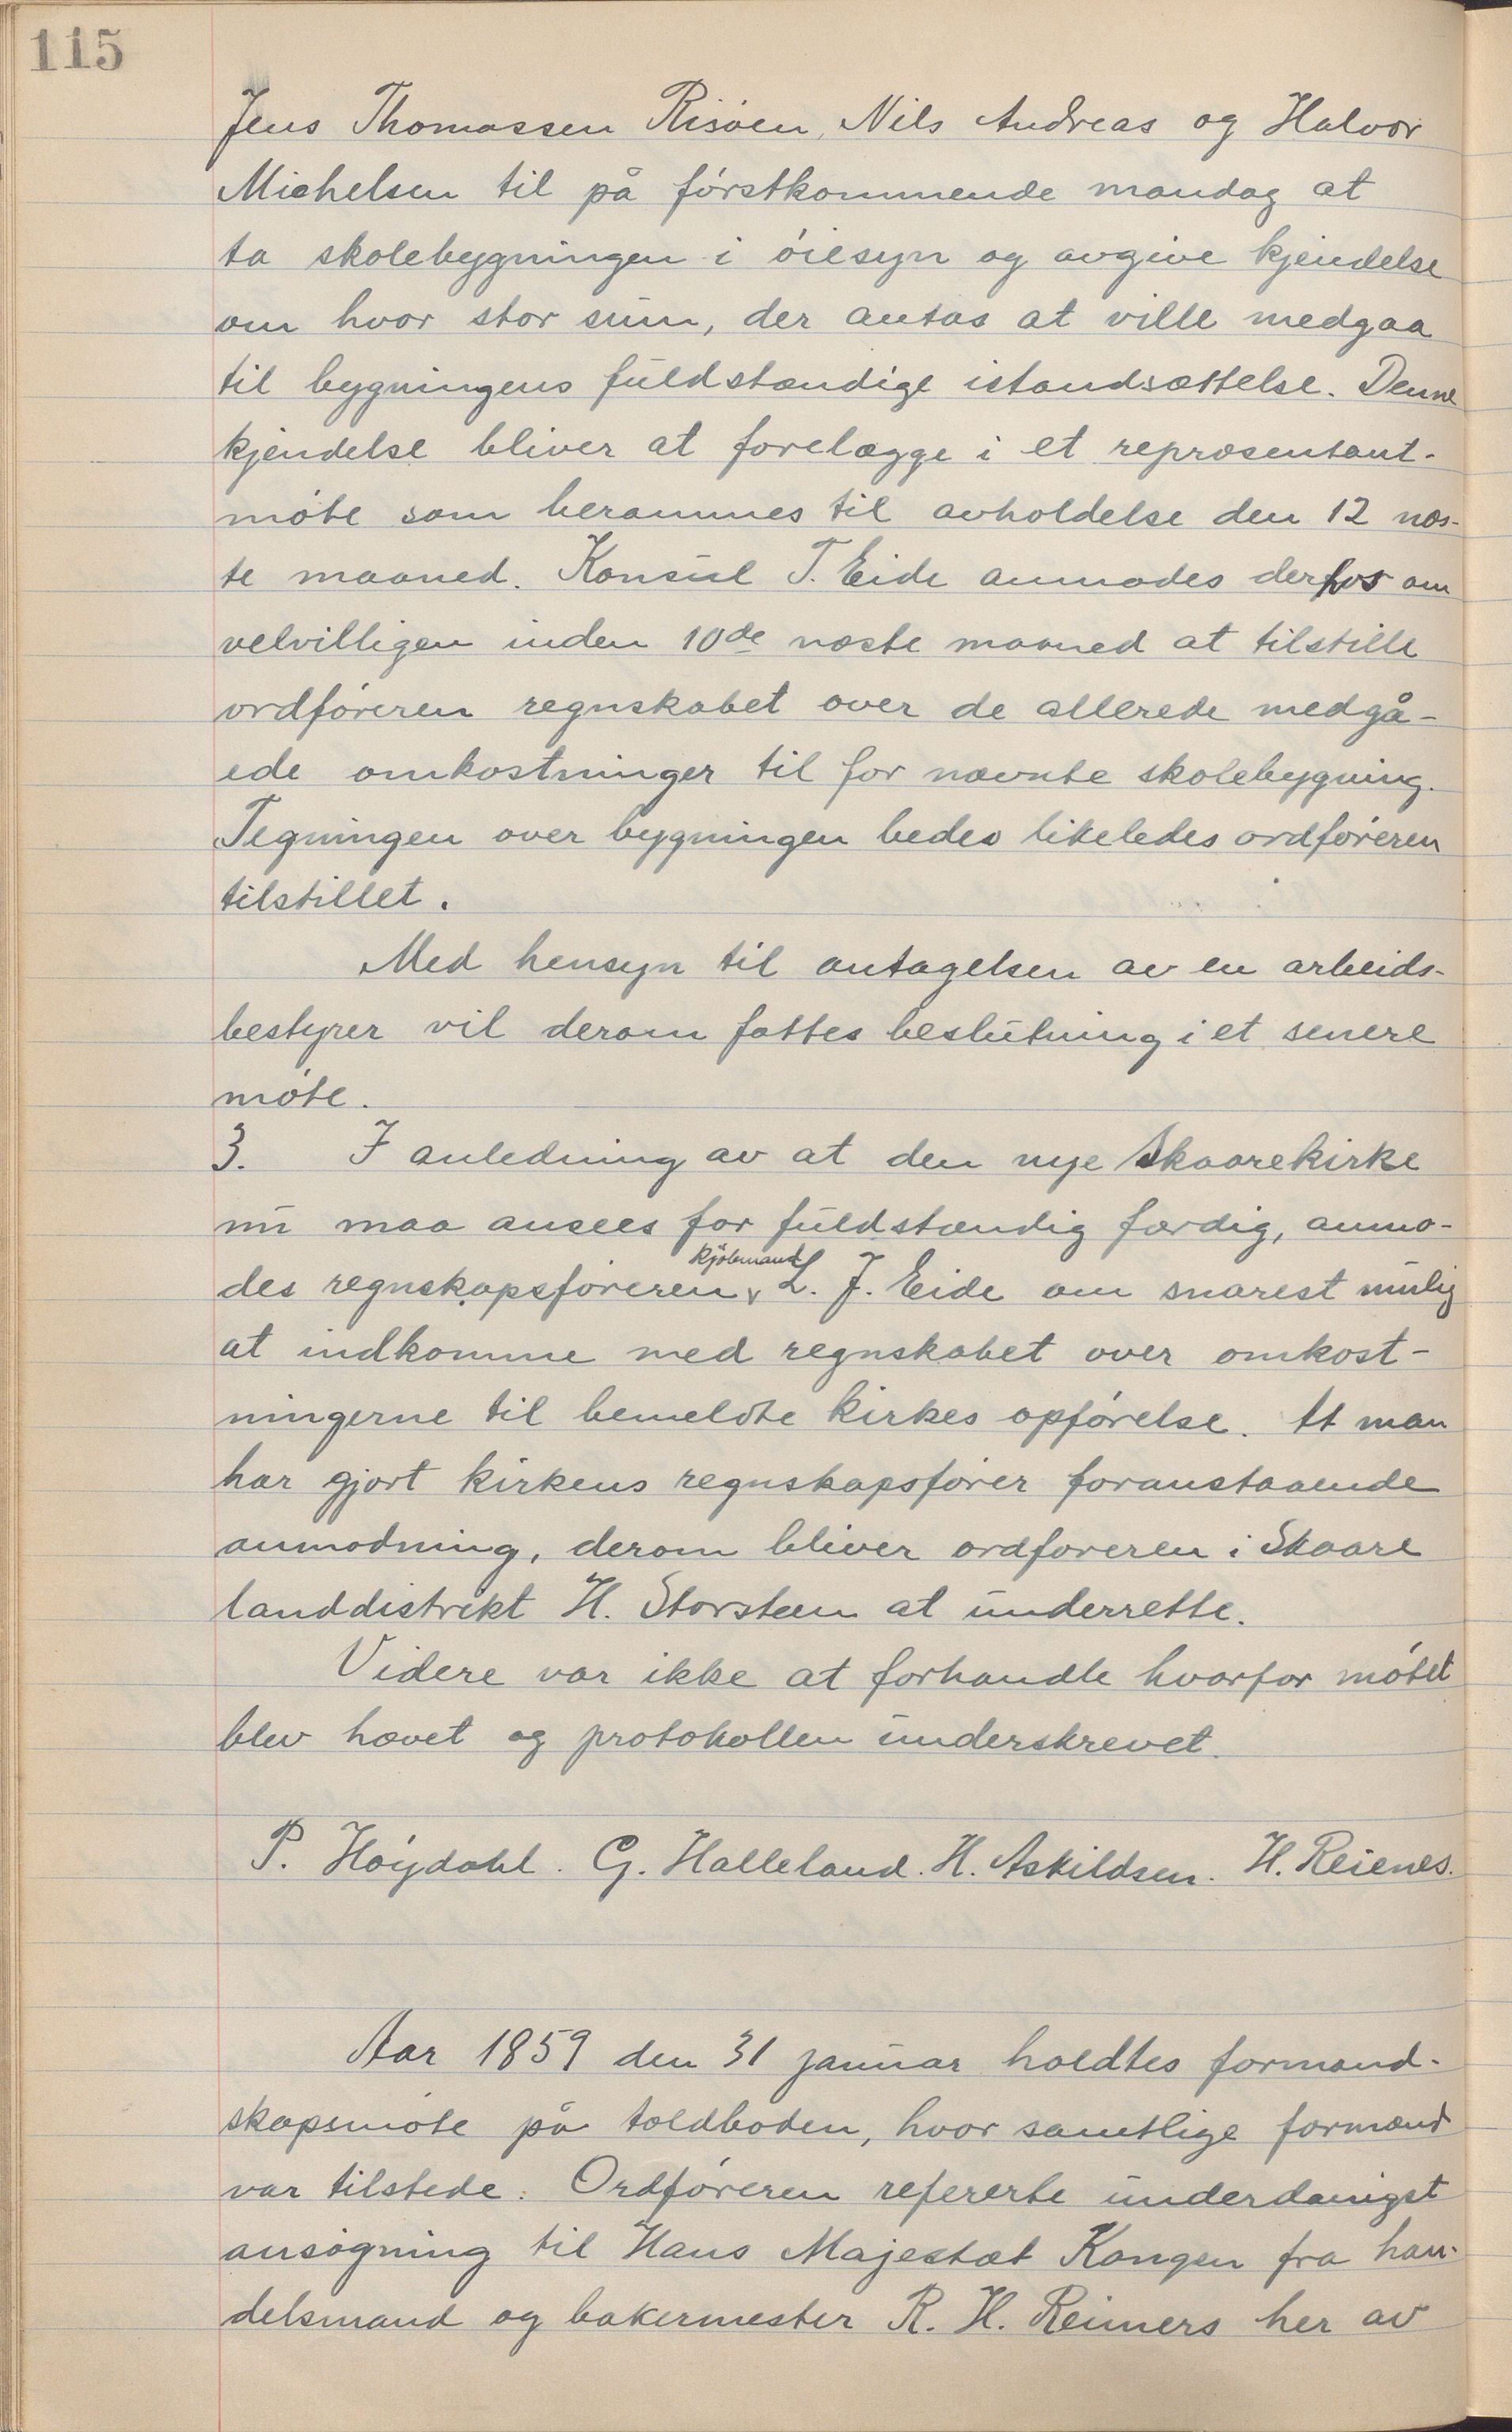 115
Jens Thomassen Risöen, Nils Andreas og Halvor
Michelsen til på förstkommende mandag at
ta skolebygningen i öiesyn og avgive kjendelse
om hvor stor sum, der antas at ville medgaa
til bygningens fuldstændige istandsættelse. Denne
kjendelse bliver at forelægge i et repræsentant-
möte som berammes til avholdelse den 12 næs-
te maaned. Konsul T. Eide anmodes derhos om
velvilligen inden 10de næste maaned at tilstille
ordföreren regnskabet over de allerede medgå-
ede omkostninger til for nævnte skolebygning.
Tegningen over bygningen bedes likeledes ordföreren
tilstillet.
Med hensyn til antagelsen av en arbeids-
bestyrer vil derom fattes beslutning i et senere
möte.
3. I anledning av at den nye Skaarekirke
nu maa ansees for fuldstændig færdig, anmo-
kjöbmand
des regnskapsföreren, L. J. Eide om snarest mulig
at indkomme med regnskabet over omkost-
ningerne til bemeldte kirkes opförelse. At man
har gjort kirkens regnskapsförer foranstaaende
anmodning, derom bliver ordföreren i Skaare
landdistrikt H. Storsteen at underrette.
Videre var ikke at forhandle hvorfor mötet
blev hævet og protokollen underskrevet.
P. Höydahl. G. Halleland. H. Askildsen. H. Reienes.
Aar 1859 den 31 januar holdtes formand-
skapsmöte på toldboden, hvor samtlige formænd
var tilstede. Ordföreren refererte underdanigst
ansögning til Hans Majestæt Kongen fra han-
delsmand og bakermester R. H. Reimers her av